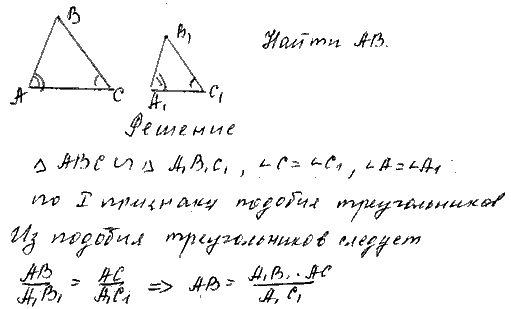 B
B₁
Найти AB.
A
C
A₁
C₁
Решение
△ ABC ∽ △ A₁B₁C₁, ∠C=∠C₁, ∠A=∠A₁
по I признаку подобия треугольников
Из подобия треугольников следует
AB/A₁B₁ = AC/A₁C₁ => AB = A₁B₁·AC/A₁C₁